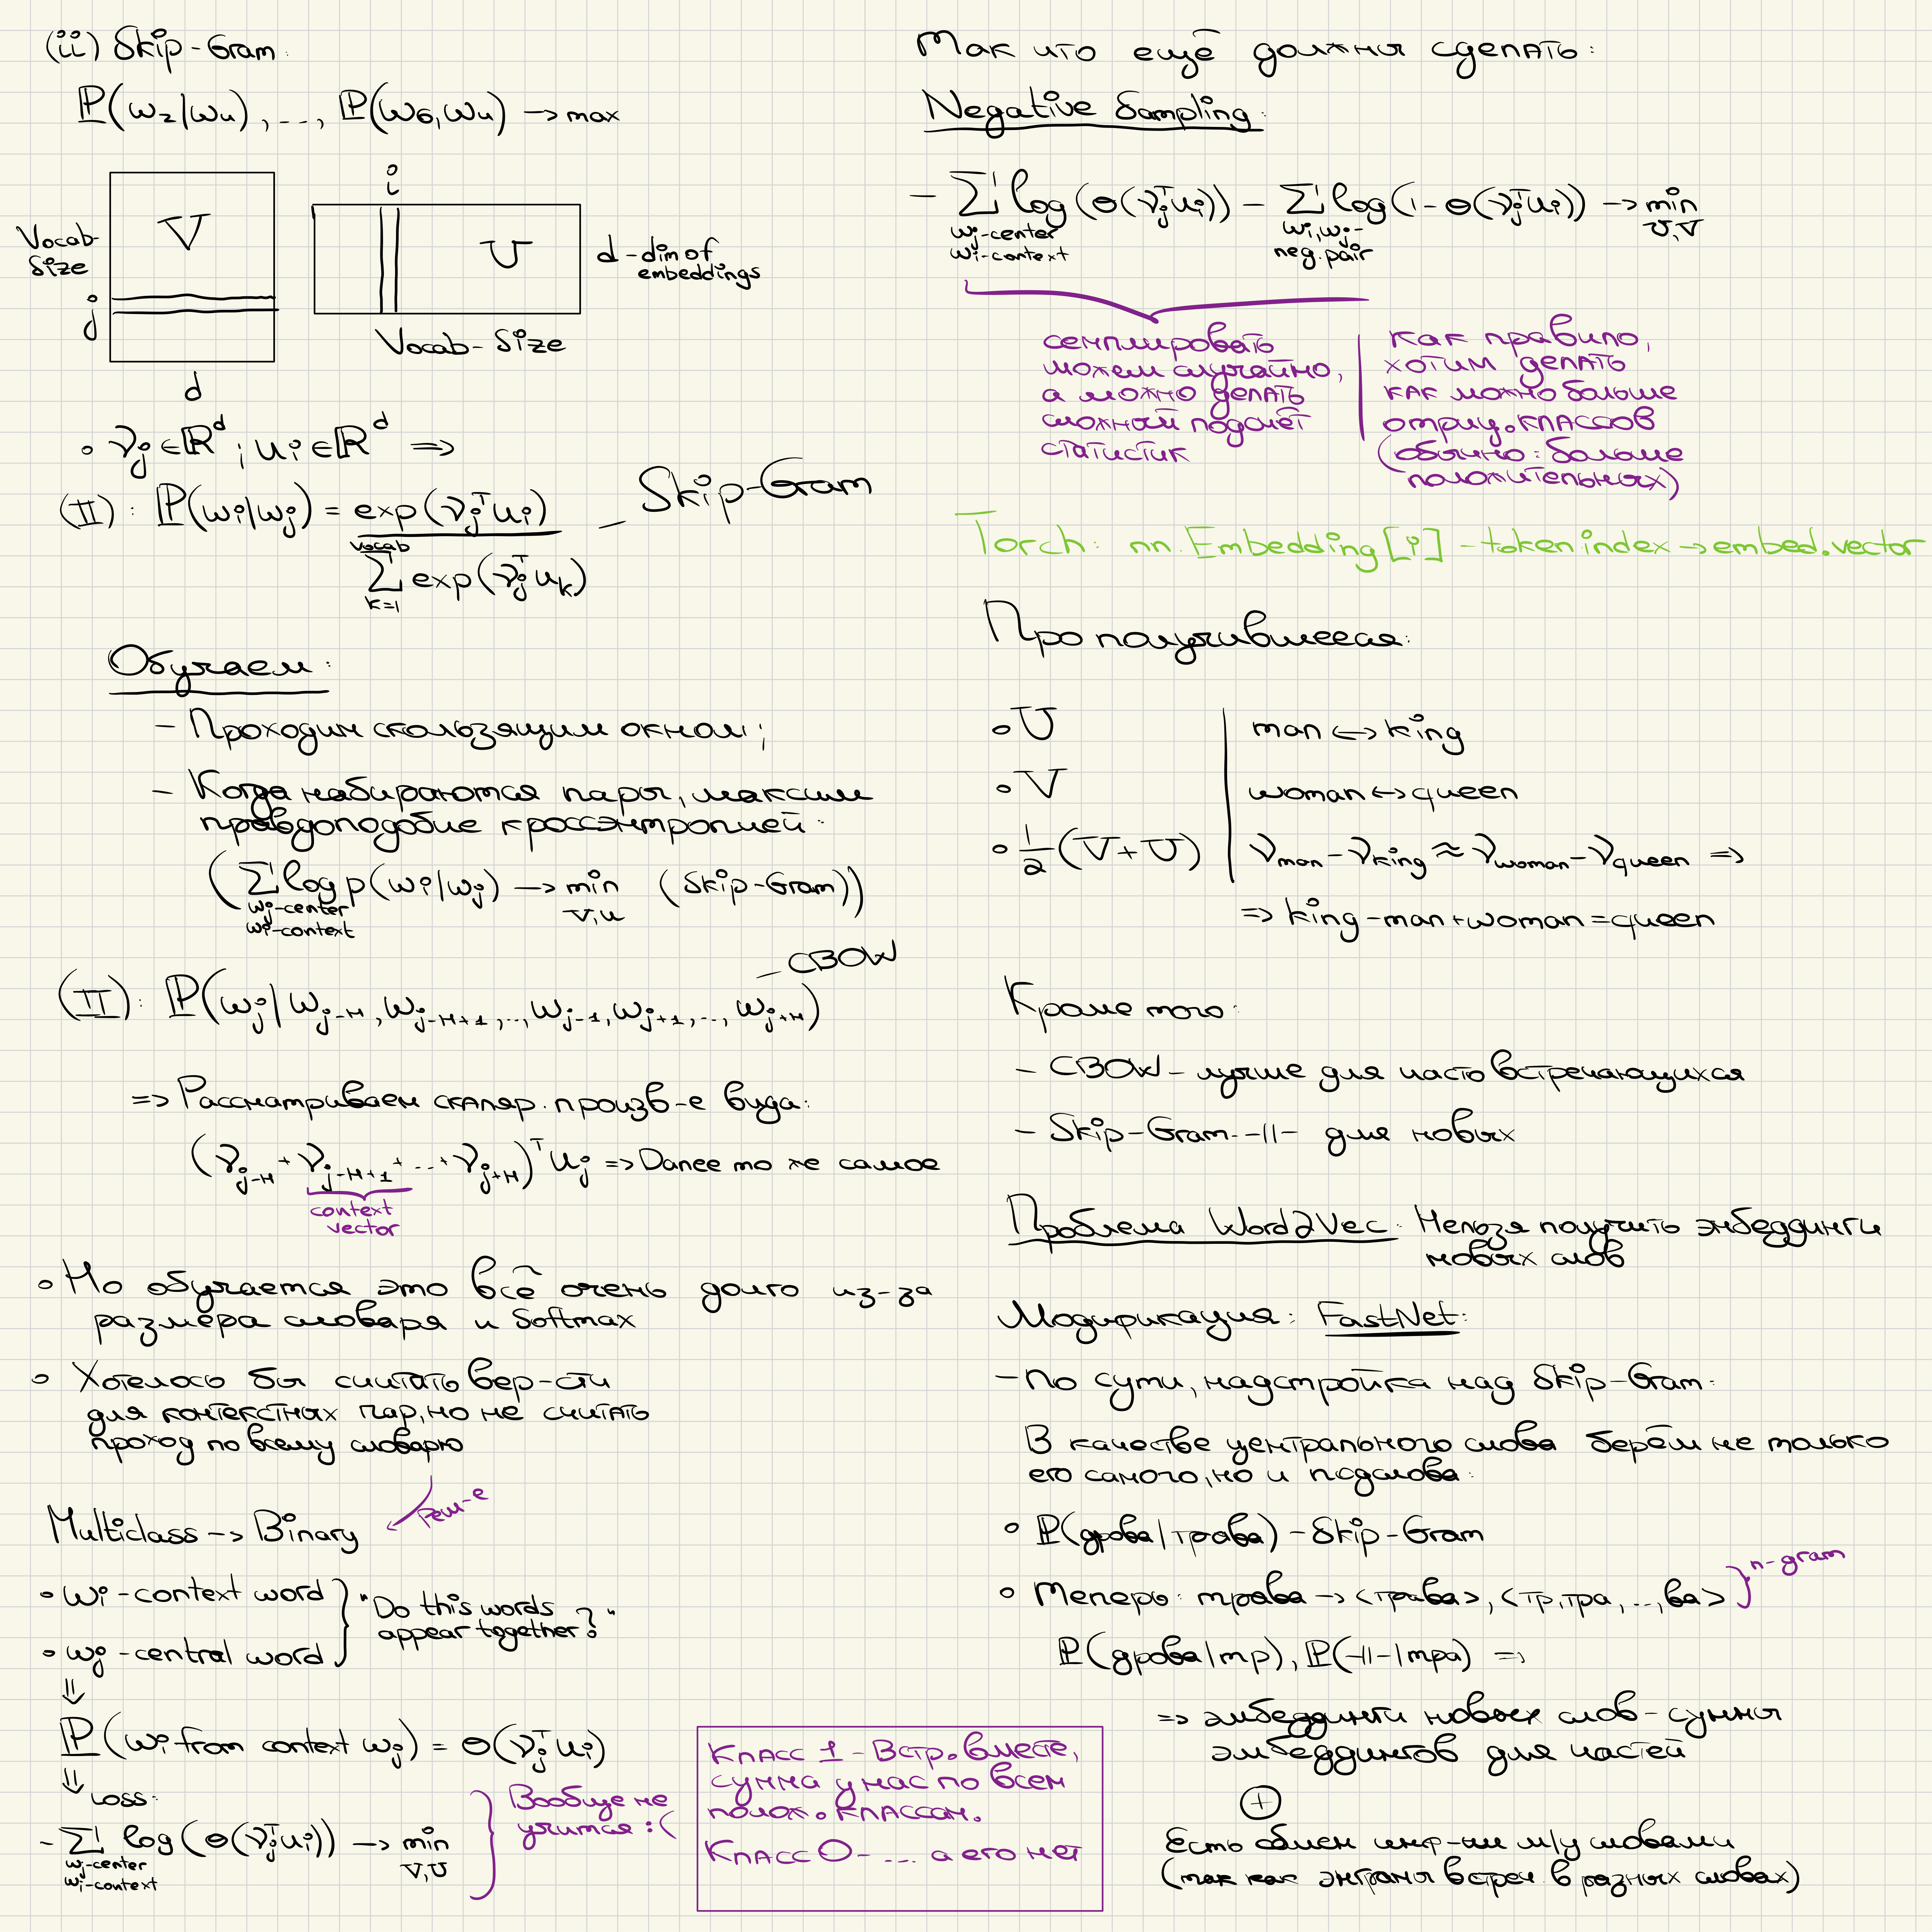 (ii) Skip-Gram:
ℙ(w₂|w₄), ..., ℙ(w₆, w₄) → max
Vocab-
Size
V
j
d
i
U
d - dim of
embeddings
Vocab-Size
∘ νⱼ ∈ ℝᵈ; uᵢ ∈ ℝᵈ =>
(II): ℙ(wᵢ|wⱼ) = exp(νⱼᵀuᵢ) / Σₖ₌₁^vocab exp(νⱼᵀuₖ) – Skip-Gram
Обучаем:
- Проходим скользящим окном;
- Когда набираются пары, максим
правдоподобие кроссэнтропией:
(Σ log p(wᵢ|wⱼ) → min (Skip-Gram))
wⱼ-center
wᵢ-context
V,u
(II): ℙ(wⱼ|wⱼ₋ₙ, wⱼ₋ₙ₊₁, ..., wⱼ₋₁, wⱼ₊₁, ..., wⱼ₊ₙ) – CBOW
=> Рассматриваем скаляр. произв-е вида:
(νⱼ₋ₙ + νⱼ₋ₙ₊₁ + ... + νⱼ₊ₙ)ᵀuⱼ => Далее то же самое
context
vector
∘ Но обучается это всё очень долго из-за
размера словаря и Softmax
∘ Хотелось бы считать вер-сти
для контекстных пар, но не считать
проход по всему словарю
реш-е
Multiclass → Binary
∘ wᵢ - context word
∘ wⱼ - central word
"Do this words
appear together?"
⇓
ℙ(wᵢ from context wⱼ) = σ(νⱼᵀuᵢ)
⇓ Loss:
- Σ log(σ(νⱼᵀuᵢ)) → min
wⱼ-center
wᵢ-context
V,U
Вообще не
учится :(
Класс 1 - Встр. вместе,
сумма у нас по всем
полож. классам.
Класс 0 - ... а его нет
Так что ещё должны сделать:
Negative Sampling:
- Σ log(σ(νⱼᵀuᵢ)) - Σ log(1 - σ(νⱼᵀuᵢ)) → min
wⱼ-center
wᵢ-context
wᵢ,wⱼ-
neg.pair
U,V
семплировать
можем случайно,
а можно делать
сложный подсчёт
статистик
Как правило,
хотим делать
как можно больше
отриц. классов
(обычно: больше
положительных)
Torch: nn.Embedding[i] - token index → embed.vector
Про получившееся:
∘ U
∘ V
∘ 1/2 (V+U)
man ↔ king
woman ↔ queen
ν_man - ν_king ≈ ν_woman - ν_queen =>
=> king - man + woman = queen
Кроме того:
- CBOW - лучше для часто встречающихся
- Skip-Gram -||- для новых
Проблема Word2Vec: Нельзя получить эмбеддинги
новых слов
Модификация: FastNet:
- По сути, надстройка над Skip-Gram:
В качестве центрального слова берём не только
его самого, но и подслова:
∘ ℙ(дрова|трава) - Skip-Gram
∘ Теперь: трава → <трава>, <тр, тра, ..., ва>
n-gram
ℙ(дрова|тр), ℙ(-||-|тра) =>
=> эмбеддинги новых слов - суммы
эмбеддингов для частей
⊕
Есть обмен инф-ии м/у словами
(так как энграмы встреч. в разных словах)